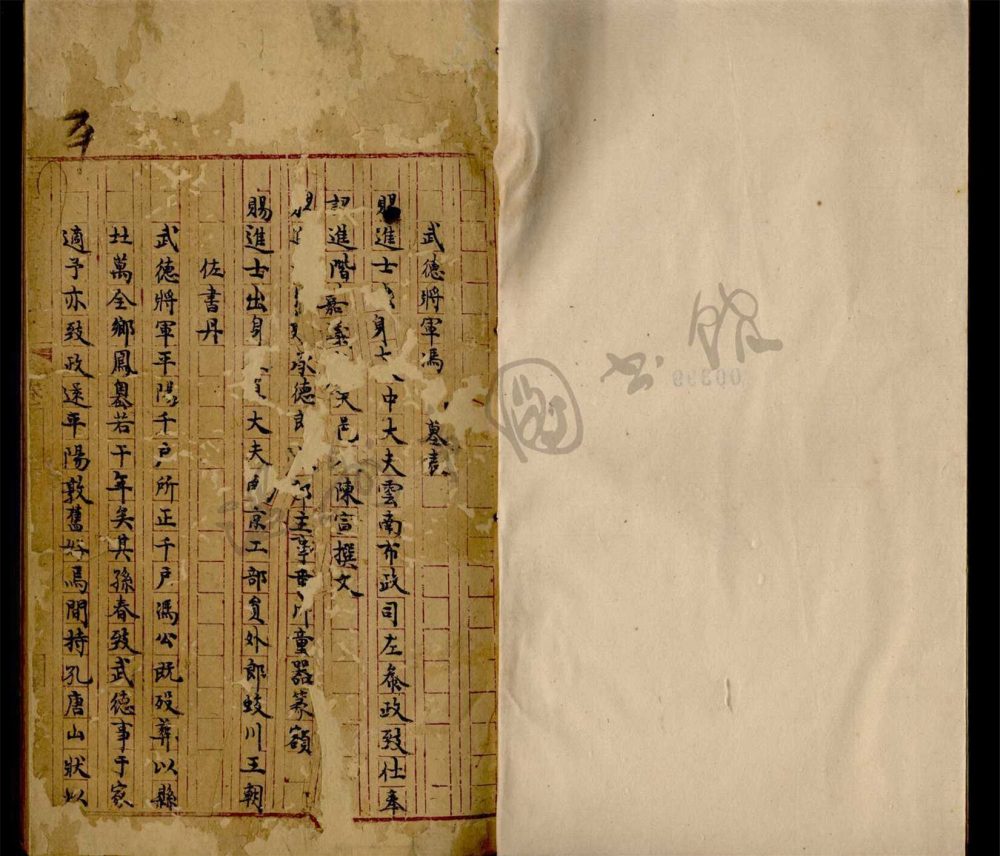 武德將軍馮 墓表
賜進士 身 中大夫雲南布政司左叅政致仕奉
詔進階嘉 大夫邑 陳宣撰文
承德郎 部主事 所童器篆額
賜進士出身 大夫南京工部員外郎蛟川王朝
佐書丹
武德將軍平陽千戶所正千戶馮公既歿葬以縣
北萬全鄉鳳 若干年矣其孫春致武德事于家
適予亦致政還平陽敦舊好焉間持孔唐山狀以